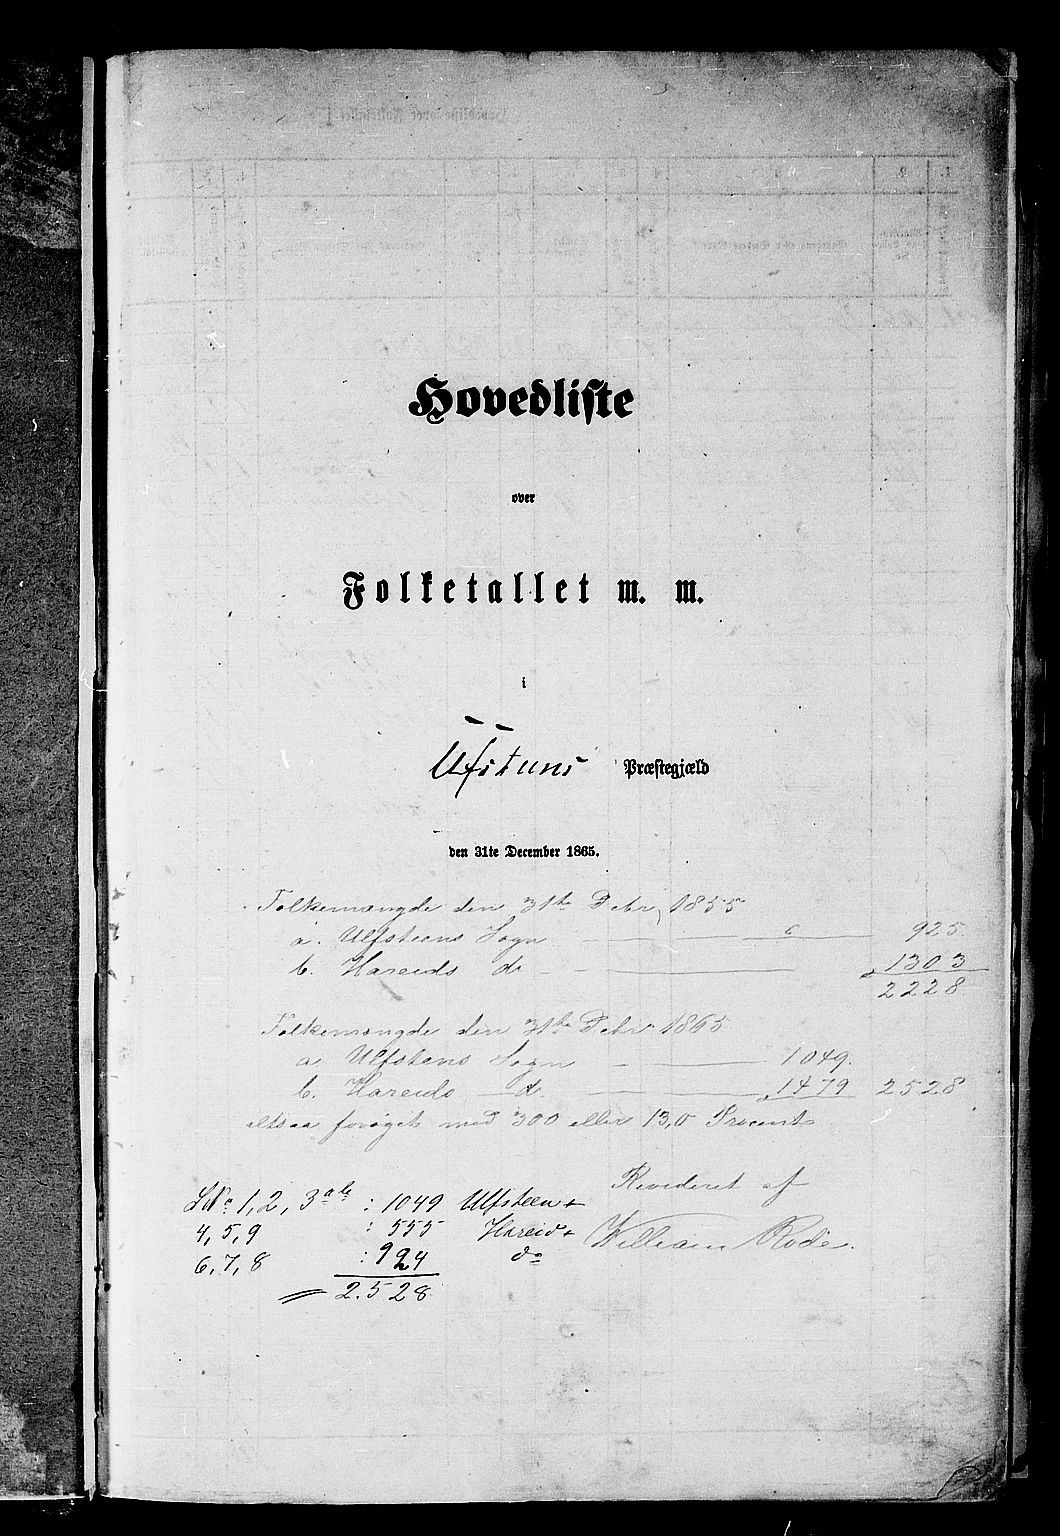 Hovedliste
over
Folketallet m. m.
i
Ulfstens Præstegjæld
den 31te December 1865.
Folkemængde den 31te Debr. 1855
a. Ulfsteens Sogn 925
b. Hareids do 1303
2228
Folkemængde den 31te Debr 1865
a Ulfstens Sogn 1049.
b. Hareids d. 1479 2528
altsaa forøget med 300 eller 13,0 Procent
Revideret af
William Rode.
LNo 1, 2, 3 a b : 1049 Ulfsteen
4, 5, 9 : 555 Hareid
6, 7, 8 : 924 do
2.528